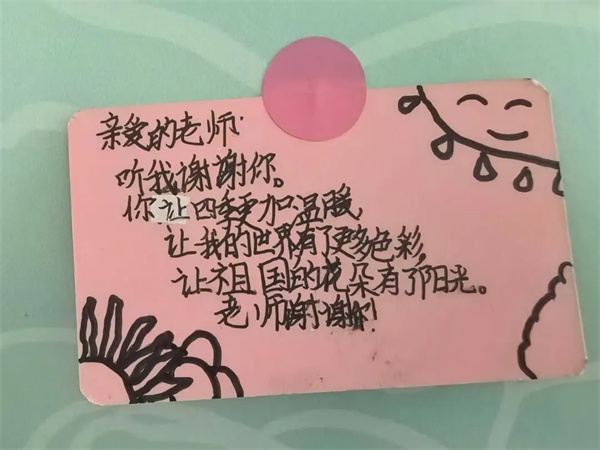 亲爱的老师:
听我谢谢你。
你让四季更加温暖,
让我的世界有了更多色彩,
让祖国的花朵有了阳光。
老师谢谢你!